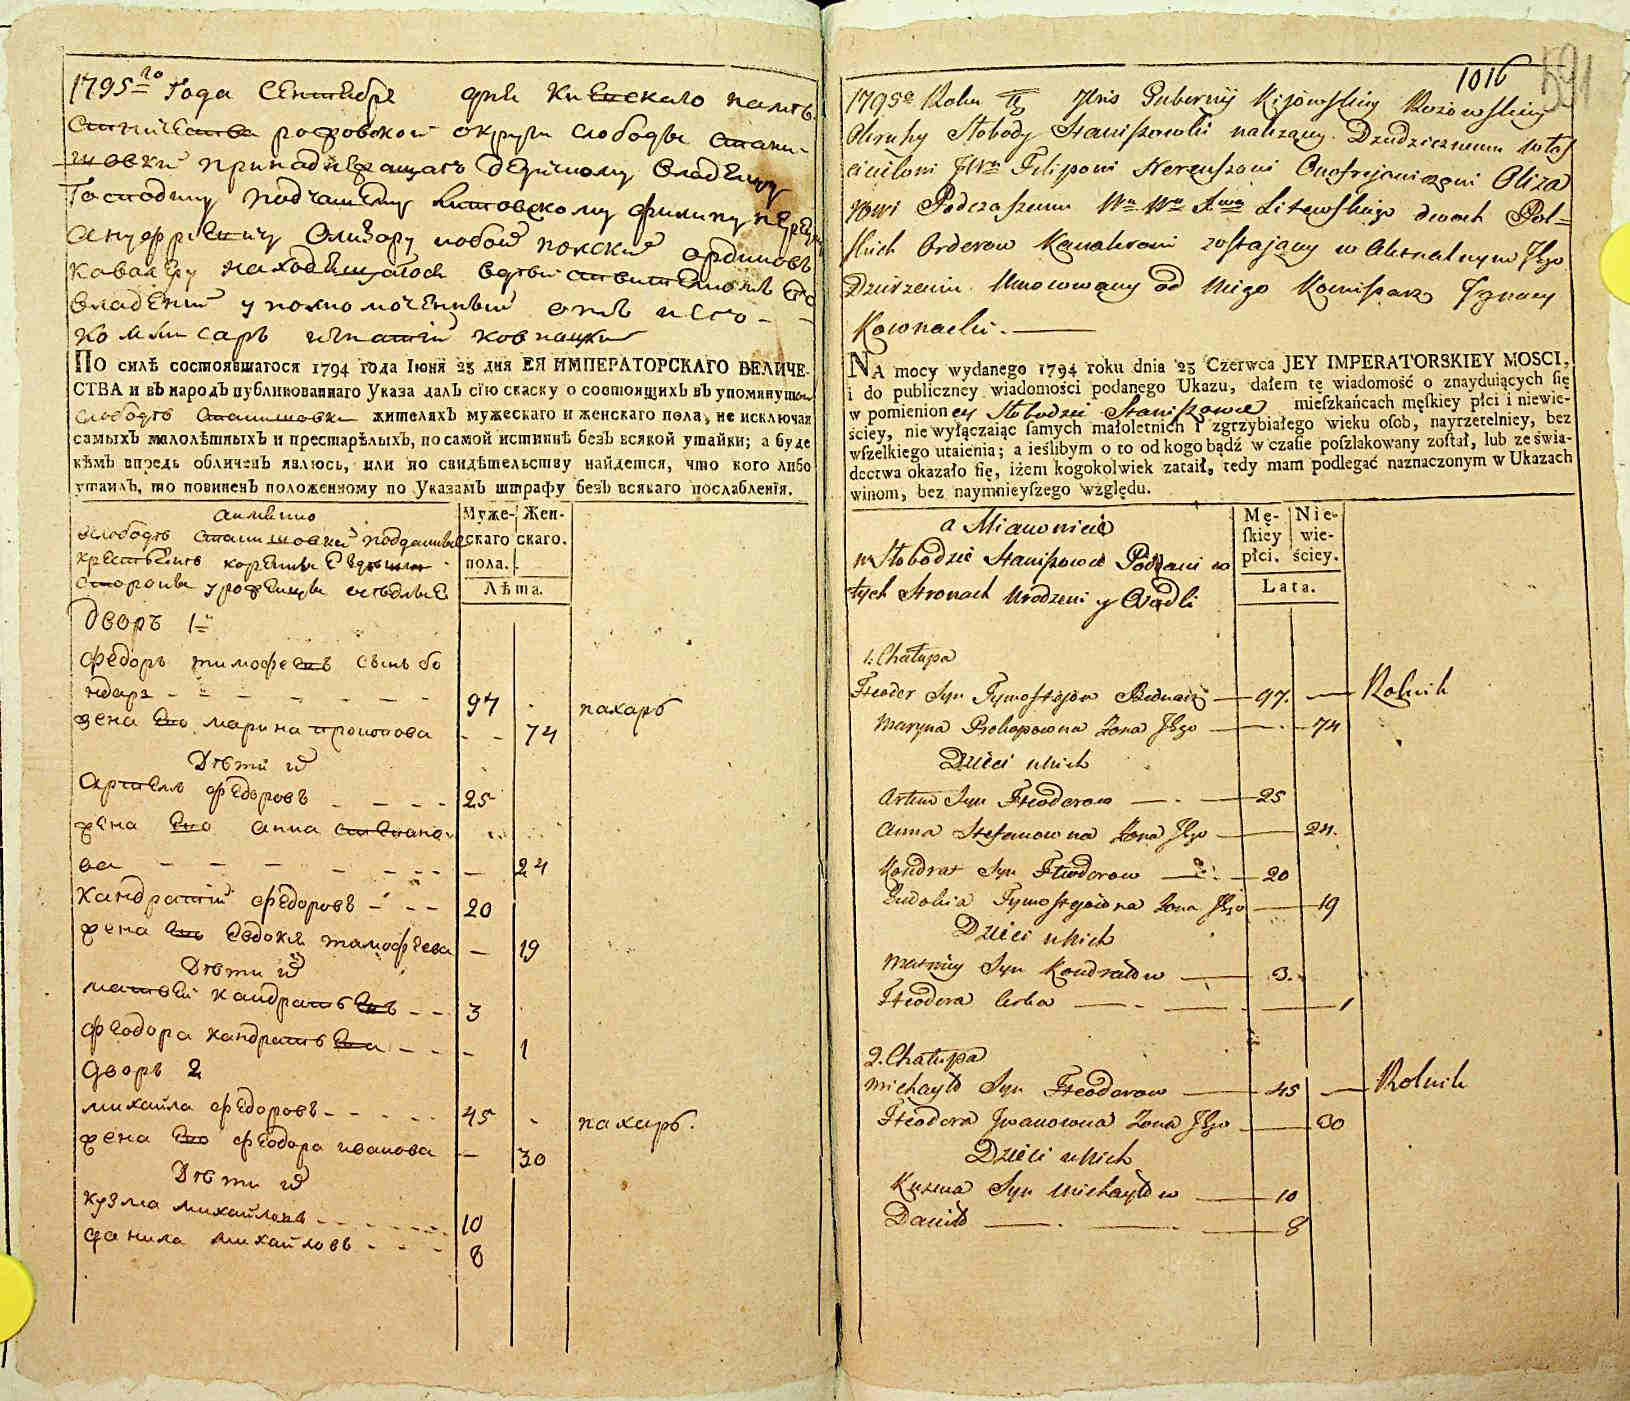 1795го Года Сентебре дня Киевскаго намѣс
стничества рофовской округи слободы стани-
шовки принадлежащаго дедичному владелцу
Господину подчашему литовскому филипу нереушу
ануфриевичу Олизару
кавалеру находящагося
владении уполномоченный отъ него
комисаръ игнатий ковнацки
ПО силѣ состоявшагося 1794 года Іюня 23 дня ЕЯ ИМПЕРАТОРСКАГО ВЕЛИЧЕ-
СТВА и въ народъ публикованнаго Указа далъ сїю скаску о состоящихъ въ упомянутой
слободѣ Станишовки жителяхъ мужескаго и женскаго пола, не исключая
самыхъ малолѣтныхъ и престарѣлыхъ, по самой истиннѣ безъ всякой утайки; а буде
кѣмъ впредь обличенъ явлюсь, или по свидѣтельству найдется, что кого либо
утаилъ, то повиненъ положенному по Указамъ штрафу безъ всякаго послабленїя.
аимянно
Муже- Жен-
слободѣ Станишовки подданные
скаго скаго.
пола.
урожденцы
Лѣта.
Дворъ 1й
федоръ тимофеевъ сынъ бо
ндарь 97 пахарь
жена его марина прокопова 74
Дѣти их
Артемъ федоровъ 25
жена его анна степано
ва 24
Кандратий федоровъ 20
жена его Евдокия тамофѣева 19
Дѣти их
матвей кандратьевъ 3
феодора кандратьева 1
дворъ 2
михайла федоровъ 45 пахарь.
жена его феодора иванова 30
Дѣти их
кузма михайловъ 10
данила михайловъ 8
1016
591
1795o Roku Gubernij Kijowskiey Rożowskiey
Okruhy Słobody Staniszowki należący Dziedzicznemu włas
cicilowi Filiponi Nereuszowi Onofrejewiczowi Oliza
rowi Podczaszemu Litewskiego dwoch Pol=
skich Orderow Kawalerowi zostający w Aktualnym Jego
Dzierzeniu Umocowany od Niego Komisarz Ignacy
Kownacki.
NA mocy wydanego 1794 roku dnia 23 Czerwca JEY IMPERATORSKIEY MOSCI,
i do publiczney wiadomości podanego Ukazu, dałem tę wiadomość o znayduiących ſię
w pomienioney Słobodzie Staniszowce mieſzkańcach męſkiey płci i niewie-
ściey, nie wyłączaiąc ſamych małoletnich i zgrzybiałego wieku oſob, nayrzetelniey, bez
wſzelkiego utaienia; a ieślibym o to od kogo bądź w czaſie poſzlakowany zoſtał, lub ze świa-
dectwa okazało ſię, iżem kogokolwiek zataił, tedy mam podlegać naznaczonym w Ukazach
winom, bez naymnieyſzego względu.
a Mianowicie
Mę- Nie-
w Słobodzie Staniszowce Poddani w
ſkiey wie-
płci. ściey.
tych Stronach Urodzeni y Osadli
Lata.
1. Chałupa
Fteodor Syn Tymofteiow Bednarz 97. Rolnik
Maryna Prokopowna Zona Jego 74
Dzieci ichich
Artem Syn Fteodorow 25
Anna Stefanowna Zona Jego 24.
Kondrat Syn Fteodorow 20
Eudokia Tymofteiowna Zona Jego 19
Dzieci ichich
Matwiy Syn Kondratow 3.
Fteodora Corka 1
2. Chałupa
Michayło Syn Fteodorow 45 Rolnik
Fteodora Jwanowna Zona Jego 30
Dzieci ichich
Kuzma Syn Michayłow 10
Daniło 8